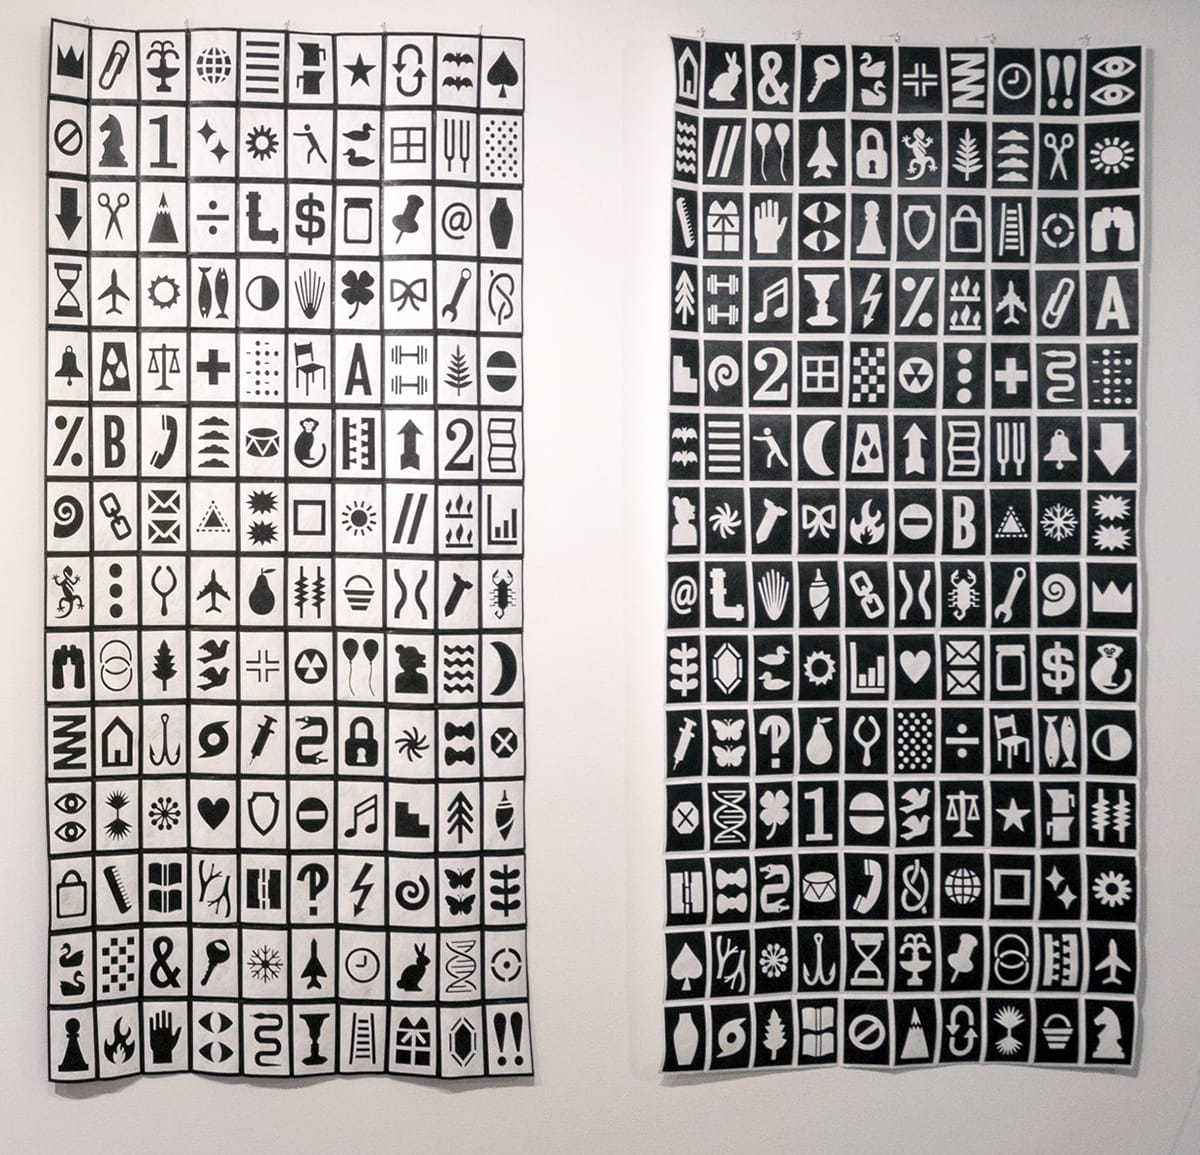 1
÷ $ @
+ A
% B 2
//
?
&
!!
& !!
//
% A
2 +
B
@
$
? ÷
1